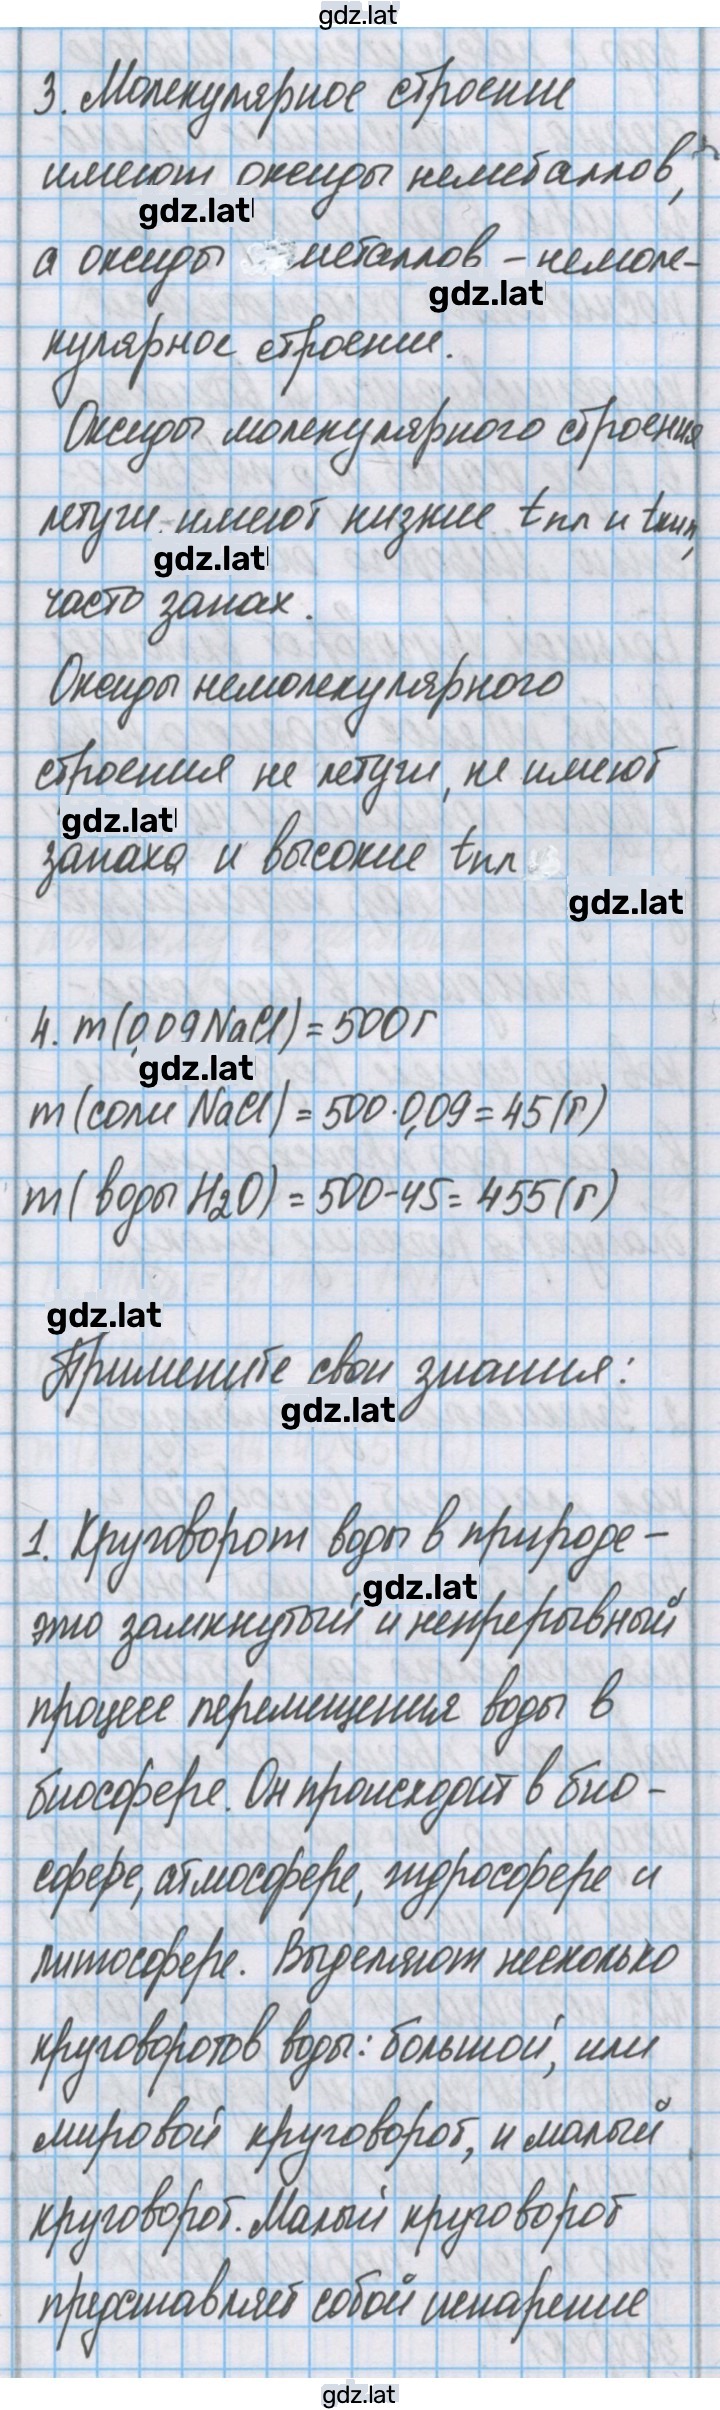 gdz.lat
3. Молекулярное строение
имеют оксиды неметаллов,
gdz.lat
а оксиды металлов - немоле-
gdz.lat
кулярное строение.
Оксиды молекулярного строения
летучи имеют низкие tпл и tкип,
gdz.lat
часто запах.
Оксиды немолекулярного
строения не летучи, не имеют
gdz.lat
запаха и высокие tпл
gdz.lat
4. m(0,09NaCl) = 500г
gdz.lat
m(соли NaCl) = 500·0,09 = 45(г)
m(воды H2O) = 500-45 = 455(г)
gdz.lat
Примените свои знания:
gdz.lat
1. Круговорот воды в природе -
gdz.lat
это замкнутый и непрерывный
процесс перемещения воды в
биосфере. Он происходит в био-
сфере, атмосфере, гидросфере и
литосфере. Выделяют несколько
круговоротов воды: большой, или
мировой круговорот, и малый
круговорот. Малый круговорот
представляет собой испарение
gdz.lat